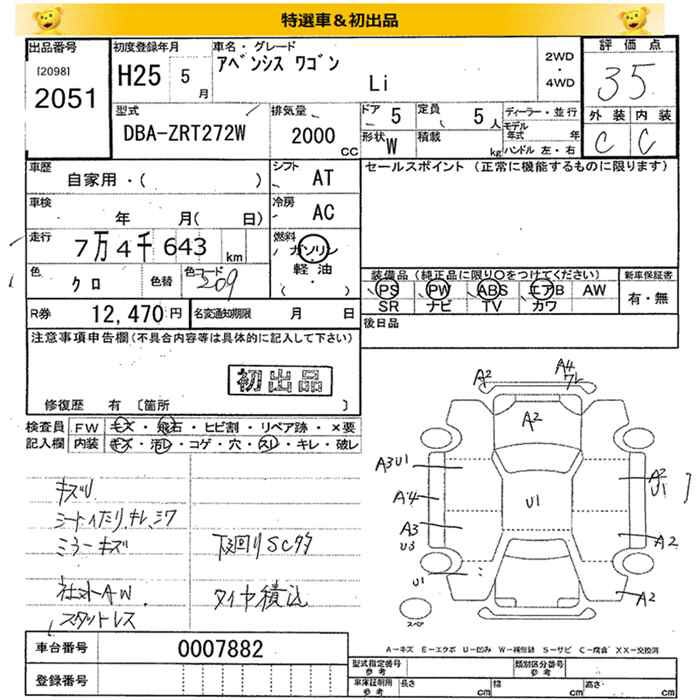 特選車＆初出品
出品番号
[2098]
2051
初度登録年月
H25 5月
車名・グレード
アベンシス ワゴン
Li
2WD
・
4WD
評価点
35
外装 内装
C C
型式
DBA-ZRT272W
排気量
2000 CC
ドア 5
定員 5人
形状 W
積載 kg
ディーラー・並行
モデル年式 年
ハンドル 左・右
車歴
自家用・( )
シフト AT
セールスポイント (正常に機能するものに限ります)
車検
年 月(日)
冷房 AC
走行
7万4千643 km
燃料
ガソリン
軽油
( ・ )
色
クロ
色替
色コード
209
装備品 (純正品に限り○をつけてください)
新車保証書
PS PW ABS エアB AW
SR ナビ TV カワ
有・無
R券
12,470円
名変通知期限 月 日
後日品
注意事項申告欄(不具合内容等は具体的に記入して下さい)
初出品
修復歴 有 〔箇所 〕
検査員
記入欄
FW キズ・飛石・ヒビ割・リペア跡・×要
内装 キズ・汚レ・コゲ・穴・スレ・キレ・破レ
キズU
シートイタミ、キレ、シワ
ミラーキズ
下回りSC
社外AW
タイヤ積込
スタットレス
A2
A4
ワレ
A2
A3 U1
A4
A3
U3
U1
U1
A2
U1
A2
A2
スペア
車台番号
0007882
登録番号
A－キズ E－エクボ U－凹み W－補修跡 S－サビ C－腐食 XX－交換済
型式指定番号
参考
類別区分番号
参考
車庫証明用
参考
長さ cm
幅 cm
高さ cm